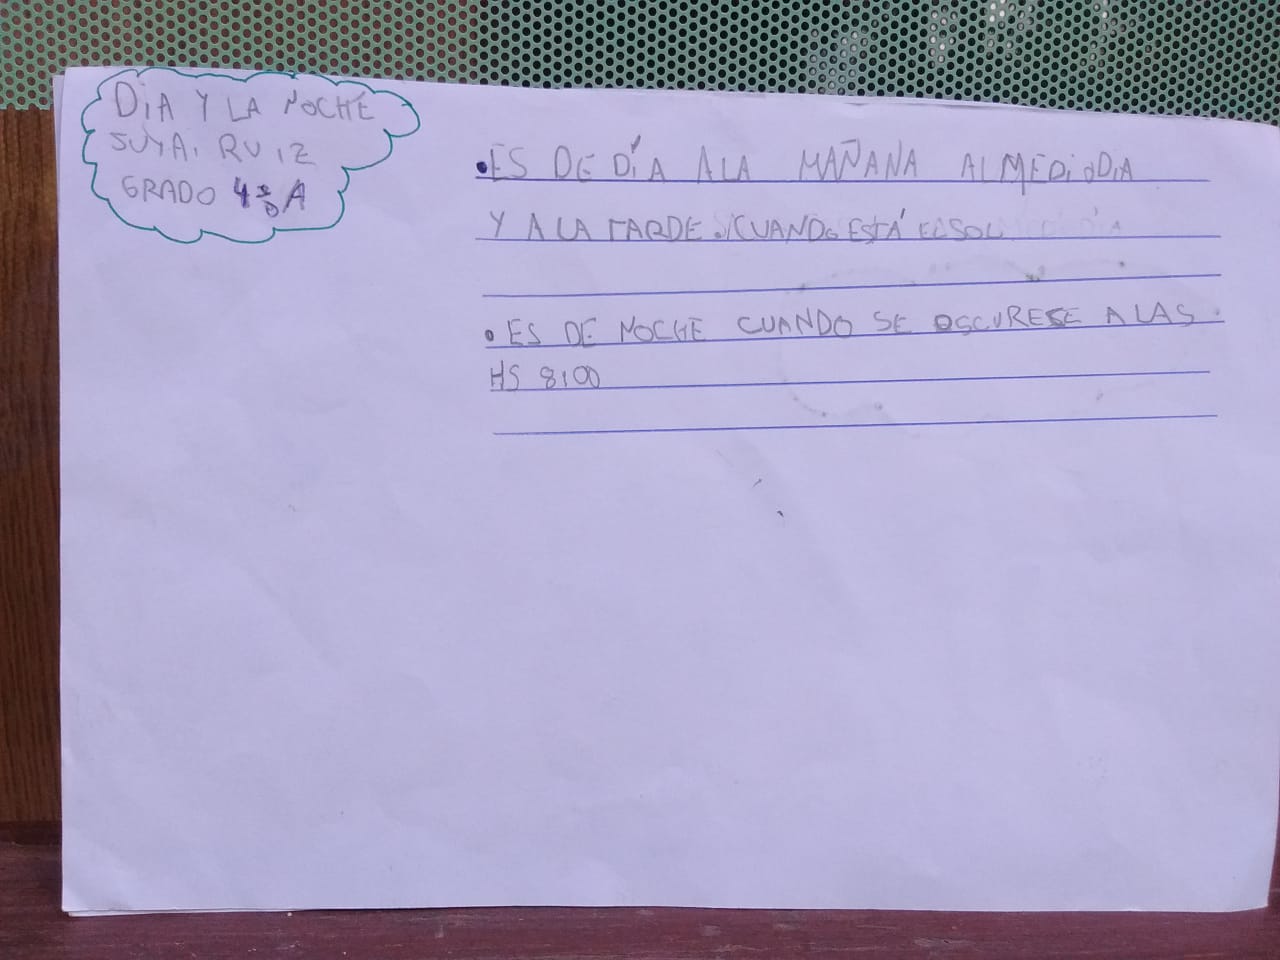 DiA Y LA NOCHE
RUIZ
GRADO 4º A
•ES DE DÍA A LA MAÑANA AL MEDiODiA
Y A LA TARDE. CUANDO ESTÁ EL SOL
• ES DE NOCHE CUANDO SE OSCURESE A LAS
HS 8:00